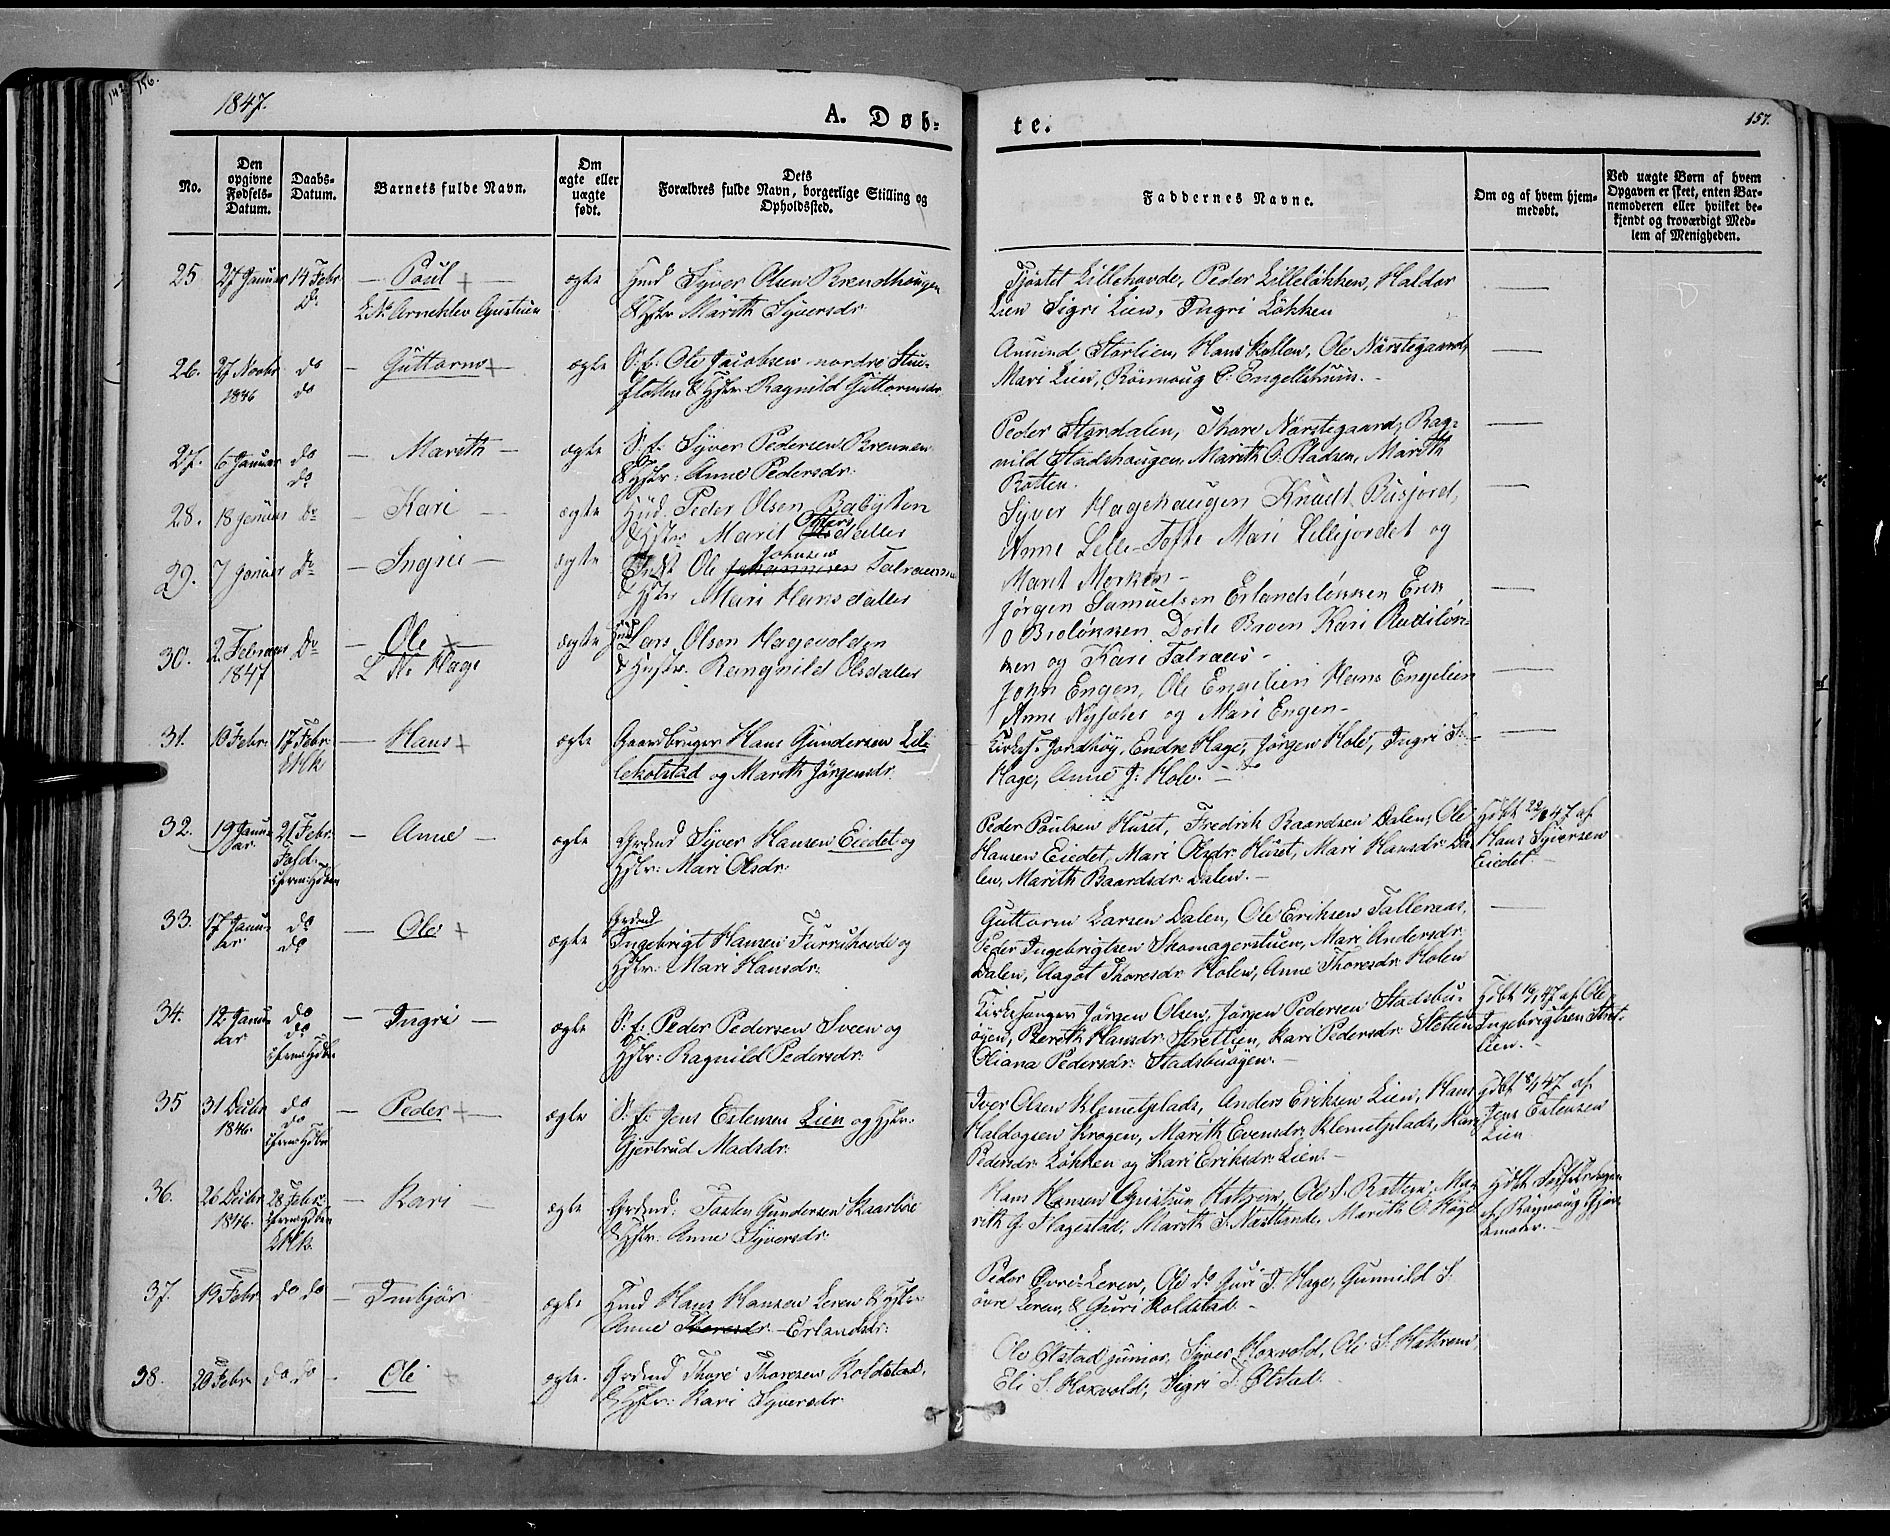 142 156.
1847.
A. Døb-
te.
157.
No.
Den opgivne Fødsels-Datum.
Daabs-Datum.
Barnets fulde Navn.
Om ægte eller uægte født.
Dets Forældres fulde Navn, borgerlige Stilling og Opholdssted.
Faddernes Navne.
Om og af hvem hjem-medøbt.
Ved uægte Børn af hvem Opgaven er skeet, enten Bar-nemoderen eller hvilket be-kjendt og troværdigt Med-lem af Menigheden.
25 27 Januar 14 Febr — Paul + — ægte Hmd Syver Olsen Brendhaugen
Do Arneklev Gustuen & Hstr Marith Syversdr
Tjøstel Lillehovde, Peder Lilleløkken, Haldor
Lien Sigri Lien, Ingri Løkken
26. 27 Novbr do — Guttorm + — ægte S: f: Ole Jacobsen nordre Stue-
1846 do flotten & Hstr: Ragnild Guttormsdr.
Amund Starlien, Hans Kollen, Ole Nørstegaard,
Mari Lien, Rönnoug P: Engellstuen. —
27. 6 Januar do — Marith — ægte S: f: Syver Pedersen Brennen
do & Hstr: Anne Pedersdr.
Peder Stordalen, Thore Nørstegaard, Rag-
nild Stadshaugen, Marith O. Pladsen, Marith
Rotten.
28. 18 januar Do — Kari — ægte Hud. Peder Olsen Babysten
& Hstr Marit Olsdatter
Syver Hagehaugen Knudt Busjord,
Anne Lille-Tofte Mari Lillejordet og
Marit Morken —
29. 7 Januar Do — Ingri — ægte Indt Ole Johnsen Talraasen
& Hstr Mari Hansdatter
Jørgen Samuelsen Erlandsløkken Erik
O Broløkken, Dorte Broen Kari Rudiløk-
ken og Kari Talraas —
30. 2. Februar Do — Ole + ægte Hmd Lars Olsen Hagevolden
1847 L No Hage & Hustr. Rangnild Olsdatter
John Engen, Ole Engelien Hans Engelien
Anne Nyjolet og Mari Engen —
31. 10 Febr. 17 Febr. — Hans + ægte Gaardbruger Hans Gundersen Lil-
lekolstad og Marith Jörgensdr.
Kirkes. Jordhøy, Endre Hage, Jörgen Hole, Ingri S.
Hage, Anne J: Hole. —
32. 19 Janu- 21 Febr. — Anne — ægte Grdmd Syver Hansen Eiedet og
ar Fold: Hstr: Mari Olsdr:
Peder Poulsen Huset, Fredrik Baardsen Dalen, Ole
Hansen Eiedet, Mari Olsdr: Huset, Mari Hansdr: Da-
len, Marith Baardsdr: Dalen. —
Hdbt 22/1 47 af
Hans Syversen
Eiedet. —
33. 17 Janu- do — Ole + ægte Grdmd
ar do Ingebrigt Hansen Furruhovde og
Hstr: Mari Hansdr:
Guttorm Larsen Dalen, Ole Eriksen Talleraas,
Peder Ingebrigtsen Skomagerstuen, Mari Andersdr:
Dalen, Aagot Thoresdr: Holen, Anne Thoresdr: Holen
34. 12 Janu- do — Ingri — ægte S: f: Peder Pedersen Sveen og
ar do Hstr: Ragnild Pedersdr:
Kirkesanger Jörgen Olsen, Jörgen Pedersen Stadsbu-
öyen, Berith Hansdr: Strettien, Kari Pedersdr: Stetten
Oliana Pedersdr: Stadsbuöyen. —
Hdbt 16/1 47 af Ole
Ingebrigtsen Stret-
lien. —
35 31 Decbr do — Peder + — ægte S: f: Jens Estensen Lien og Hstr:
1846 do Gjertrud Madsdr:
Iver Olsen Klemetplads, Anders Eriksen Lien, Hans
Haldogsen Krogen, Marith Evensdr: Klemetplads, Kari
Pedersdr: Løkken og Kari Eriksdr: Lien. —
Hdbt 8/1 47 af
Jens Estensen
Lien.
36. 26 Decbr 28 Febr. — Kari — ægte Grdmd: Tosten Gundersen Kaarböe
1846. & Hstr: Anne Syversdr:
Hans Hansen Hattrem, Ole S. Rotten, Ma-
rith G. Flagestad, Marith S. Nustlande, Marith O. Hage
af Rönnoug
37. 19 Febr do do — Imbjör — ægte Hmd Hans Hansen Leren & Hstr:
Anne Thoresdr. Erlandsdr:
Peder Övre-Leren, Ole do Guri I. Hage, Gunnild S.
övre Leren, & Guri Kolstad. —
38. 20 Febr do do — Ole + ægte. Grdmd Thore Thoresen Kolstad,
& Hstr: Kari Syversdr.
Ole Ølstad junior, Syver Hoxvold, Ole S. Hattrem,
Eli S. Hoxvold, Sigri T. Ølstad.